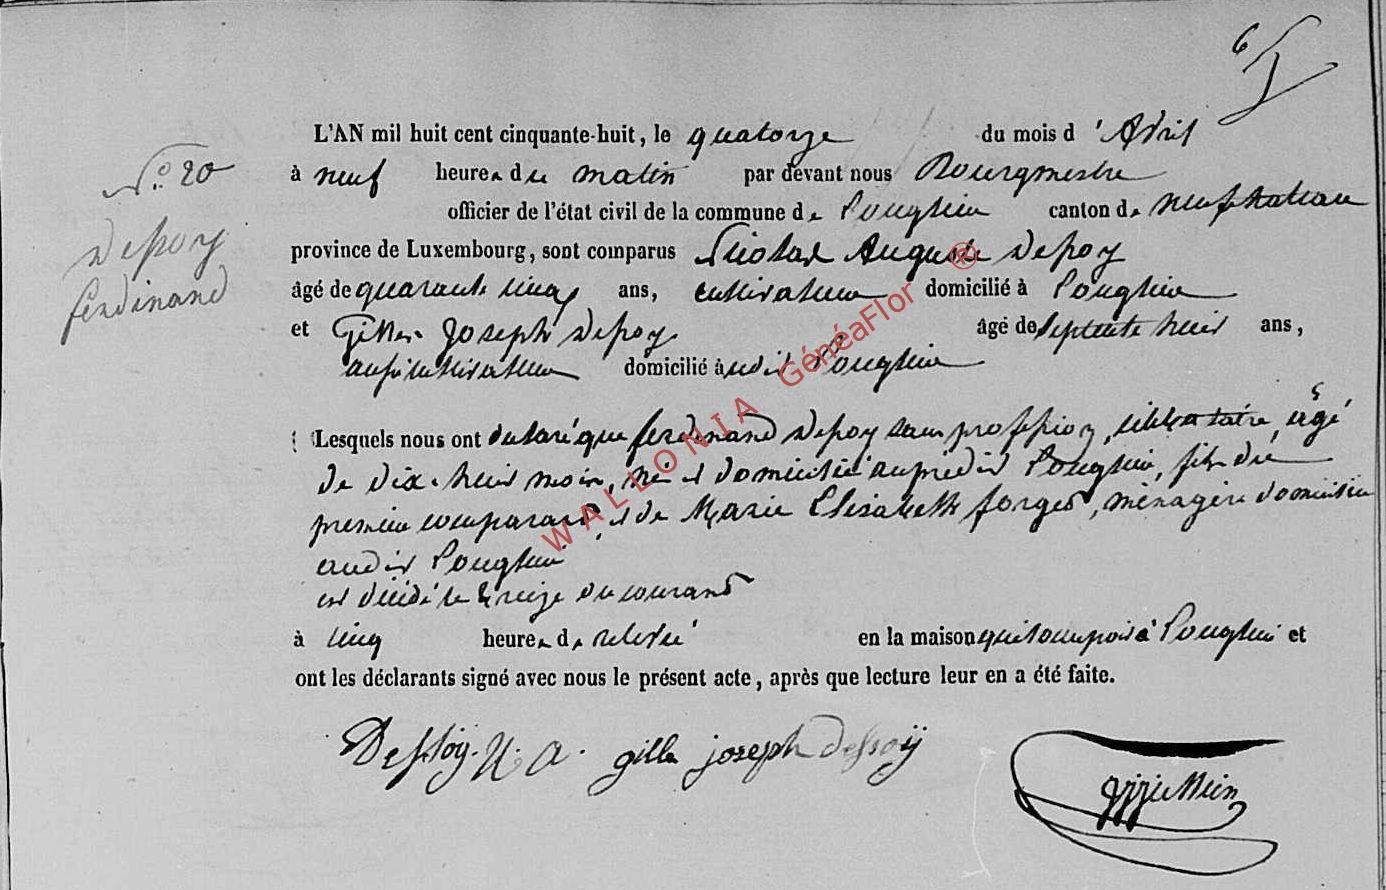 6
L'AN mil huit cent cinquante-huit, le quatorze du mois d'Avril
N.° 20
à neuf heures du matin par devant nous Bourgmestre
officier de l'état civil de la commune de Longlier canton de neufchateau
Dessoy
province de Luxembourg, sont comparus Nicolas Auguste Dessoy
ferdinand
âgé de quarante cinq ans, cultivateur domicilié à Longlier
et Gilles Joseph Dessoy âgé de septante huit ans,
aussi cultivateur domicilié audit Longlier
Lesquels nous ont déclaré que ferdinand Dessoy sans profession, célibataire, âgé
de dix-huit mois, né et domicilié au prédit Longlier, fils du
premier comparant, et de Marie Elisabeth forget, ménagère domiciliée
audit Longlier
est décédé le treize du courant
à cinq heures de relevée en la maison qu'il occupoit à Longlier et
ont les déclarants signé avec nous le présent acte, après que lecture leur en a été faite.
Dessoÿ. N. A. gille joseph dessoÿ
WALLONIA GénéaFlor ®